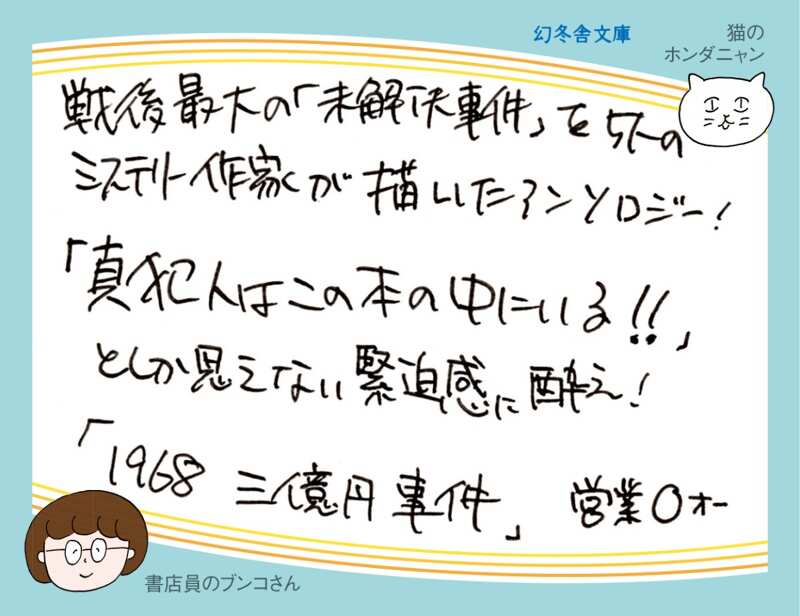 幻冬舎文庫
猫の
ホンダニャン
戦後最大の「未解決事件」を5人の
ミステリー作家が描いたアンソロジー!
「真犯人はこの本の中にいる!!」
としか思えない緊迫感に酔え!
「1968 三億円事件」 営業Oオー
書店員のブンコさん